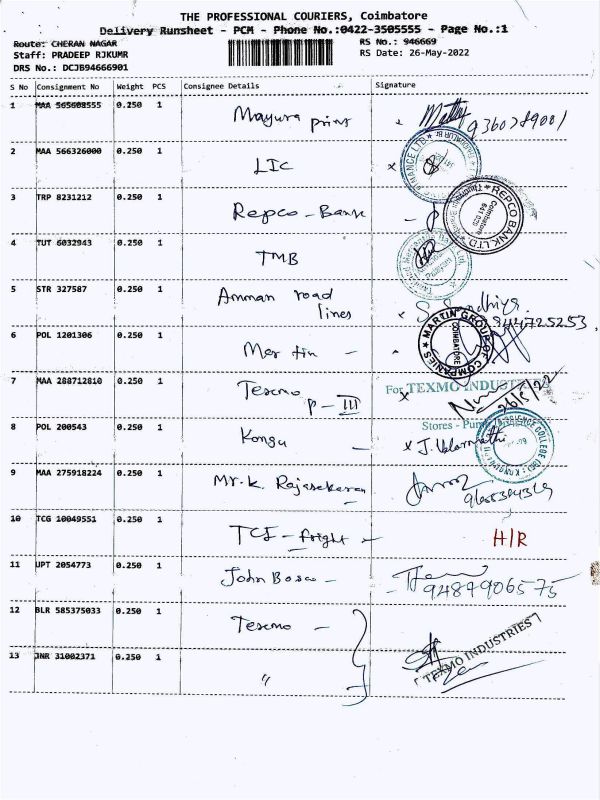 THE PROFESSIONAL COURIERS, Coimbatore
Delivery Runsheet - PCM - Phone No.:0422-3505555 - Page No.:1
Route: CHERAN NAGAR
RS No.: 946669
Staff: PRADEEP RJKUMR
RS Date: 26-May-2022
DRS No.: DCJB94666901
S No Consignment No Weight PCS Consignee Details Signature
1 MAA 565608555 0.250 1 Mayura print x 9360789001
2 MAA 566326000 0.250 1 LIC x
FINANCE LTD
3 TRP 8231212 0.250 1 Repco - Bank
REPCO BANK LTD
Coimbatore
4 TUT 6032943 0.250 1 TMB
5 STR 327587 0.250 1 Amman road
lines
S. Sandhiya
6 POL 1201306 0.250 1 Martin -
MARTIN GROUP OF COMPANIES
COIMBATORE
7 MAA 288712810 0.250 1 Texmo
p - III
x
For TEXMO INDUSTRIES
26/5/22
Stores - Pump
8 POL 200543 0.250 1 Kongu x
SCIENCE COLLEGE
9 MAA 275918224 0.250 1 Mr. K. Rajasekaran -
10 TCG 10049551 0.250 1 TCI - fright - H/R
11 UPT 2054773 0.250 1 John Bosco -
9484906575
12 BLR 585375033 0.250 1 Texmo -
TEXMO INDUSTRIES
13 JNR 31002371 0.250 1 "